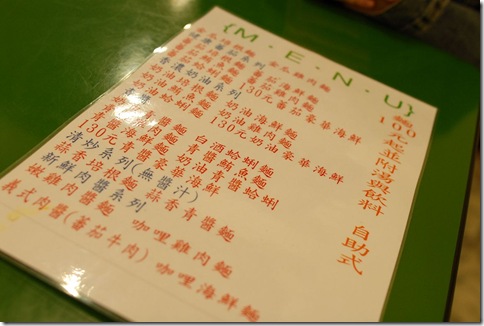 {M·E·N·U}
麵100元起並附湯與飲料 自助式
金瓜雞肉麵
蕃茄海鮮麵
130元蕃茄豪華海鮮
奶油培根麵 奶油海鮮麵
奶油鮪魚麵 奶油雞肉麵
奶油蛤蜊麵 130元奶油豪華海鮮
白酒蛤蜊麵
青醬鮪魚麵
青醬海鮮麵 奶油青醬蛤蜊
130元青醬豪華海鮮
清炒系列(無醬汁)
蒜香培根麵 蒜香青醬麵
新鮮肉醬系列
嫩雞肉醬麵 咖哩雞肉麵
義式肉醬(蕃茄牛肉) 咖哩海鮮麵